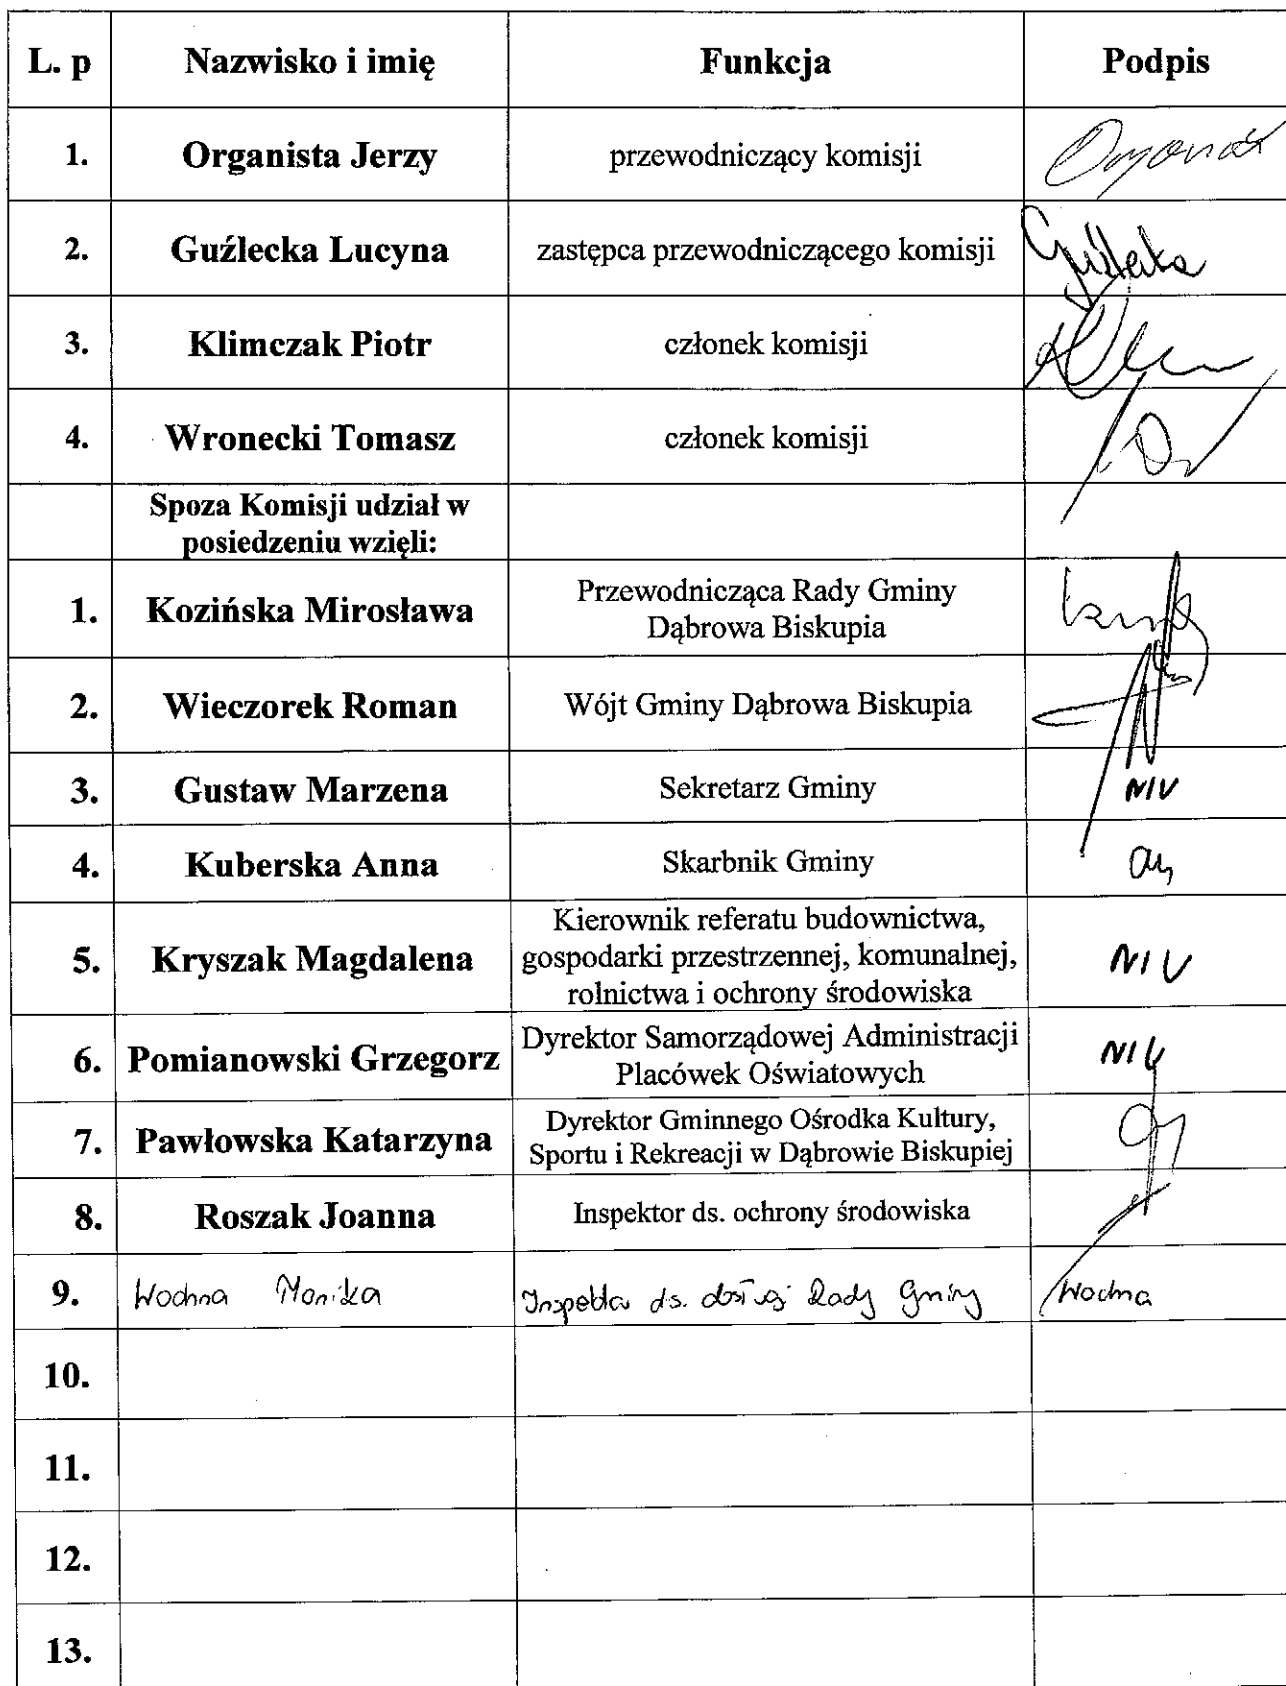 L. p Nazwisko i imię Funkcja Podpis
1. Organista Jerzy przewodniczący komisji
2. Guźlecka Lucyna zastępca przewodniczącego komisji Guźlecka
3. Klimczak Piotr członek komisji
4. Wronecki Tomasz członek komisji
Spoza Komisji udział w
posiedzeniu wzięli:
1. Kozińska Mirosława Przewodnicząca Rady Gminy
Dąbrowa Biskupia
2. Wieczorek Roman Wójt Gminy Dąbrowa Biskupia
3. Gustaw Marzena Sekretarz Gminy NIV
4. Kuberska Anna Skarbnik Gminy
5. Kryszak Magdalena Kierownik referatu budownictwa,
gospodarki przestrzennej, komunalnej,
rolnictwa i ochrony środowiska NIV
6. Pomianowski Grzegorz Dyrektor Samorządowej Administracji
Placówek Oświatowych NIV
7. Pawłowska Katarzyna Dyrektor Gminnego Ośrodka Kultury,
Sportu i Rekreacji w Dąbrowie Biskupiej
8. Roszak Joanna Inspektor ds. ochrony środowiska
9. Wochna Monika Inspektor ds. obsługi Rady Gminy Wochna
10.
11.
12.
13.